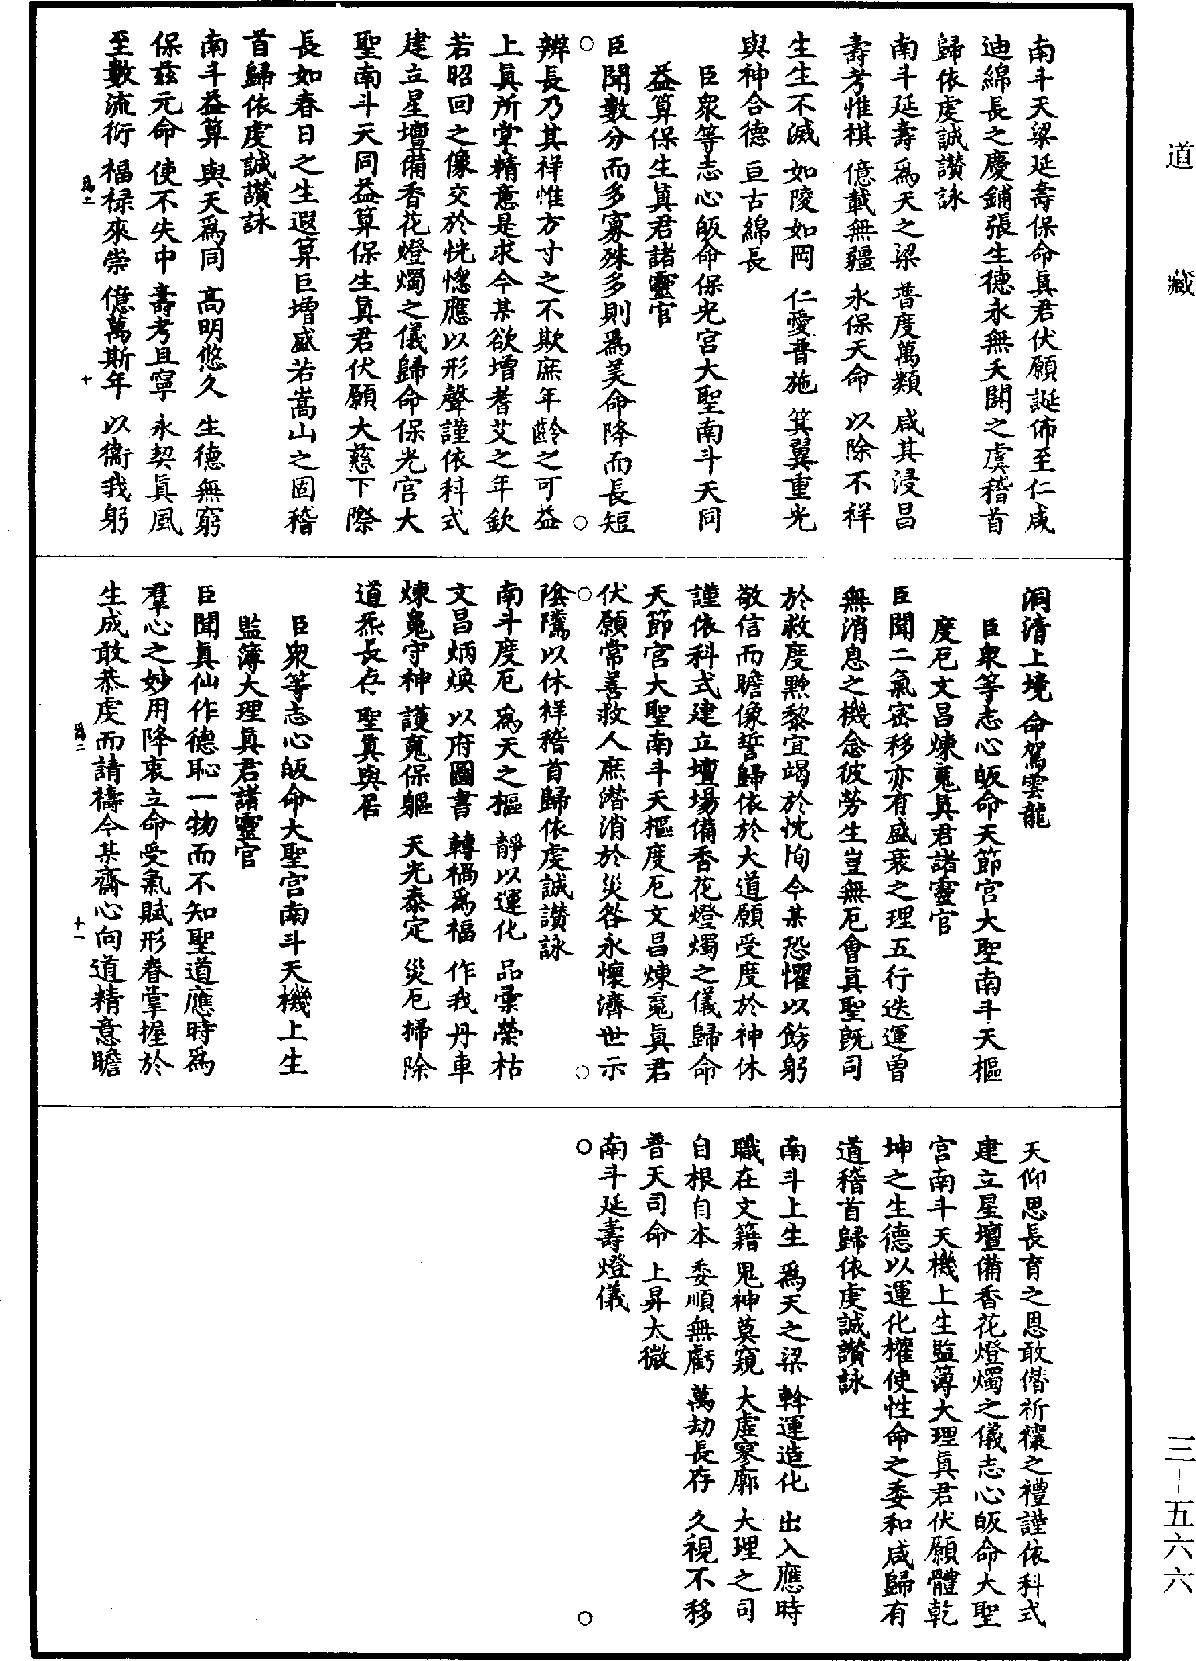 道藏
三--五六六
南斗天梁延壽保命眞君伏願誕佈至仁咸
迪綿長之慶鋪張生德永無夭閼之虞稽首
歸依虔誠讃詠
南斗延壽 爲天之梁 普度萬類 咸其浸昌
壽考惟祺 億載無疆 永保天命 以除不祥
生生不滅 如陵如岡 仁愛普施 箕翼重光
與神合德 亘古綿長
臣衆等志心皈命保光宮大聖南斗天同
益算保生眞君諸靈官
臣聞數分而多寡殊多則爲美命降而長短
辨長乃其祥惟方寸之不欺庶年齡之可益
上眞所掌精意是求今某欲增耆艾之年欽
若昭回之像交於恍惚應以形聲謹依科式
建立星壇備香花燈燭之儀歸命保光宮大
聖南斗天同益算保生眞君伏願大慈下際
長如春日之生遐算巨增盛若嵩山之固稽
首歸依虔誠讃詠
南斗益算 與天爲同 高明悠久 生德無窮
保茲元命 使不失中 壽考且寧 永契眞風
至數流衍 福祿來崇 億萬斯年 以衞我躬
爲二 十
洞清上境 命駕雲龍
臣衆等志心皈命天節宮大聖南斗天樞
度厄文昌煉魂眞君諸靈官
臣聞二氣密移亦有盛衰之理五行迭運曾
無消息之機念彼勞生豈無厄會眞聖旣司
於救度黔黎宜竭於忱恂今某恐懼以飭躬
敬信而瞻像誓歸依於大道願受度於神休
謹依科式建立壇場備香花燈燭之儀歸命
天節宮大聖南斗天樞度厄文昌煉魂眞君
伏願常善救人庶潛消於災咎永懷濟世示
陰隲以休祥稽首歸依虔誠讃詠
南斗度厄 爲天之樞 靜以運化 品彙榮枯
文昌炳煥 以府圖書 轉禍爲福 作我丹車
煉魂守神 護魄保軀 天光泰定 災厄掃除
道炁長存 聖眞與居
臣衆等志心皈命大聖宮南斗天機上生
監簿大理眞君諸靈官
臣聞眞仙作德恥一物而不知聖道應時爲
羣心之妙用降衷立命受氣賦形眷掌握於
生成敢恭虔而請禱今某齋心向道精意瞻
爲二 十一
天仰思長育之恩敢偕祈禳之禮謹依科式
建立星壇備香花燈燭之儀志心皈命大聖
宮南斗天機上生監簿大理眞君伏願體乾
坤之生德以運化權使性命之委和咸歸有
道稽首歸依虔誠讃詠
南斗上生 爲天之梁 斡運造化 出入應時
職在文籍 鬼神莫窺 大虛寥廓 大理之司
自根自本 委順無虧 萬劫長存 久視不移
普天司命 上昇太微
南斗延壽燈儀